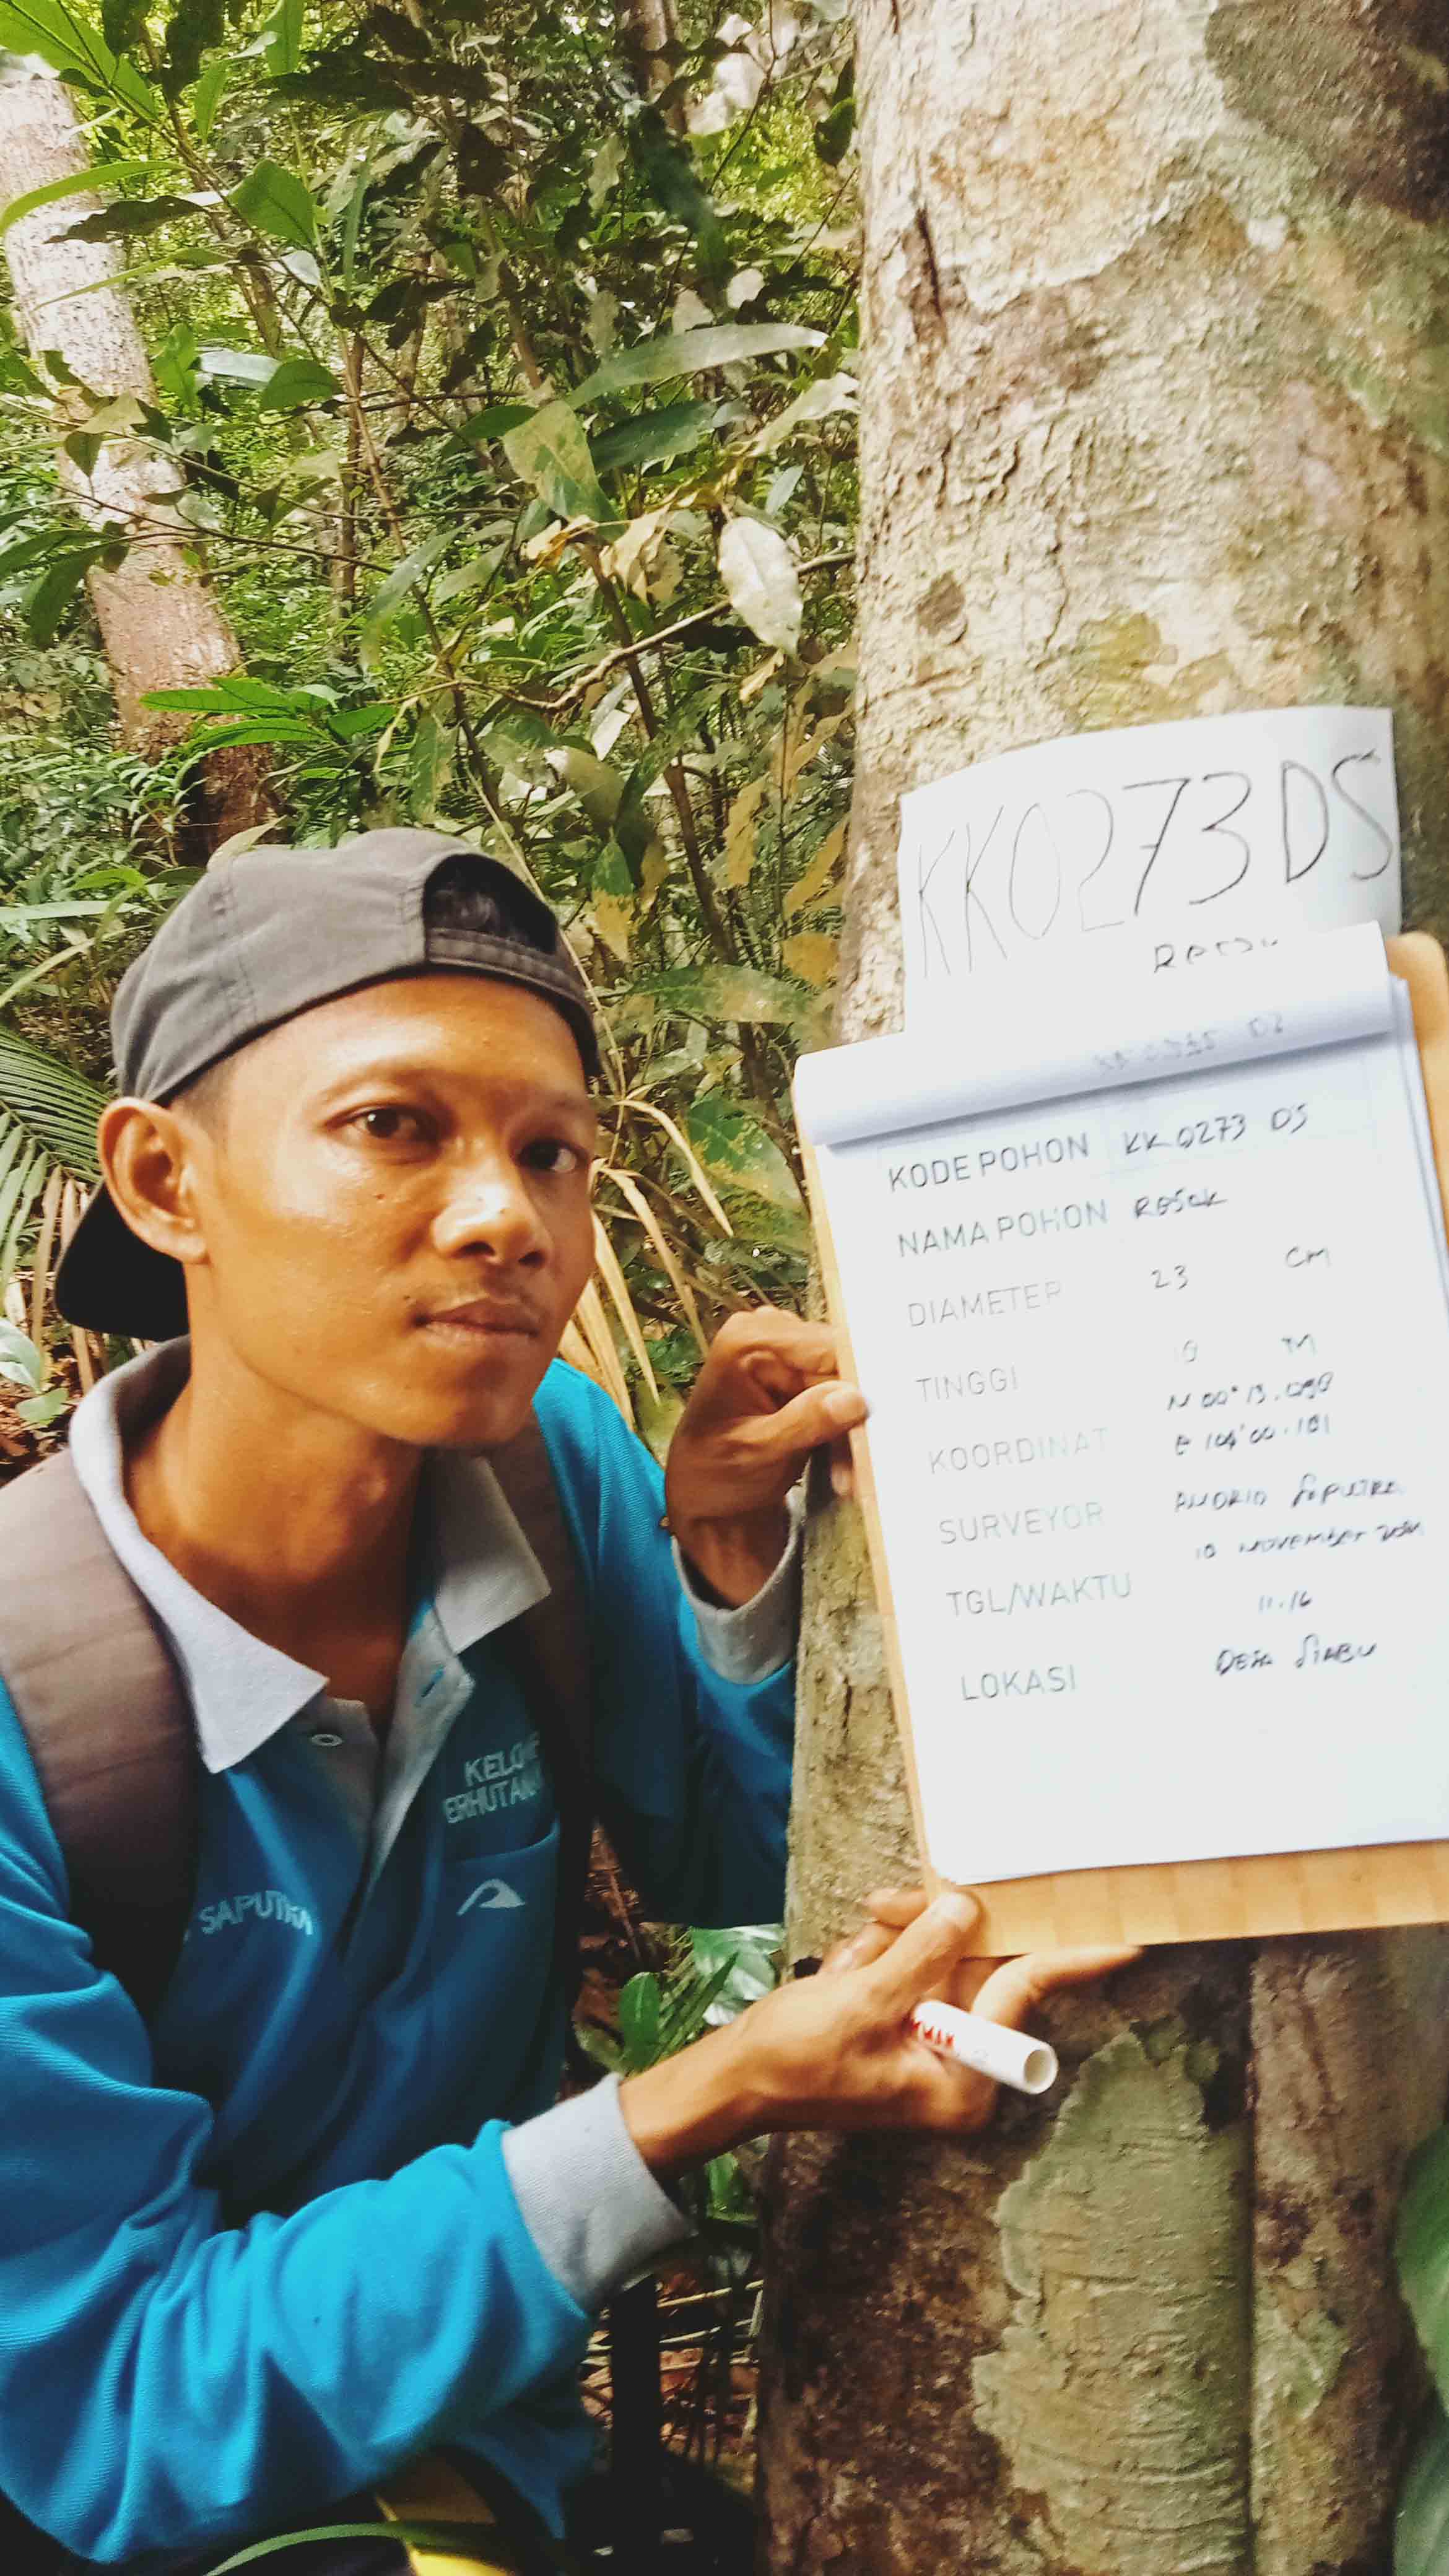 KK0273DS
KODE POHON KK 0273 DS
NAMA POHON RESAK
DIAMETER 23 CM
TINGGI 10 M
KOORDINAT N 00° 13.
E 101
SURVEYOR ANDRIO SAPUTRA
TGL/WAKTU 10 NOVEMBER
11.16
LOKASI DESA SIABU
KELOMP
ERHUTAN
SAPUTRA